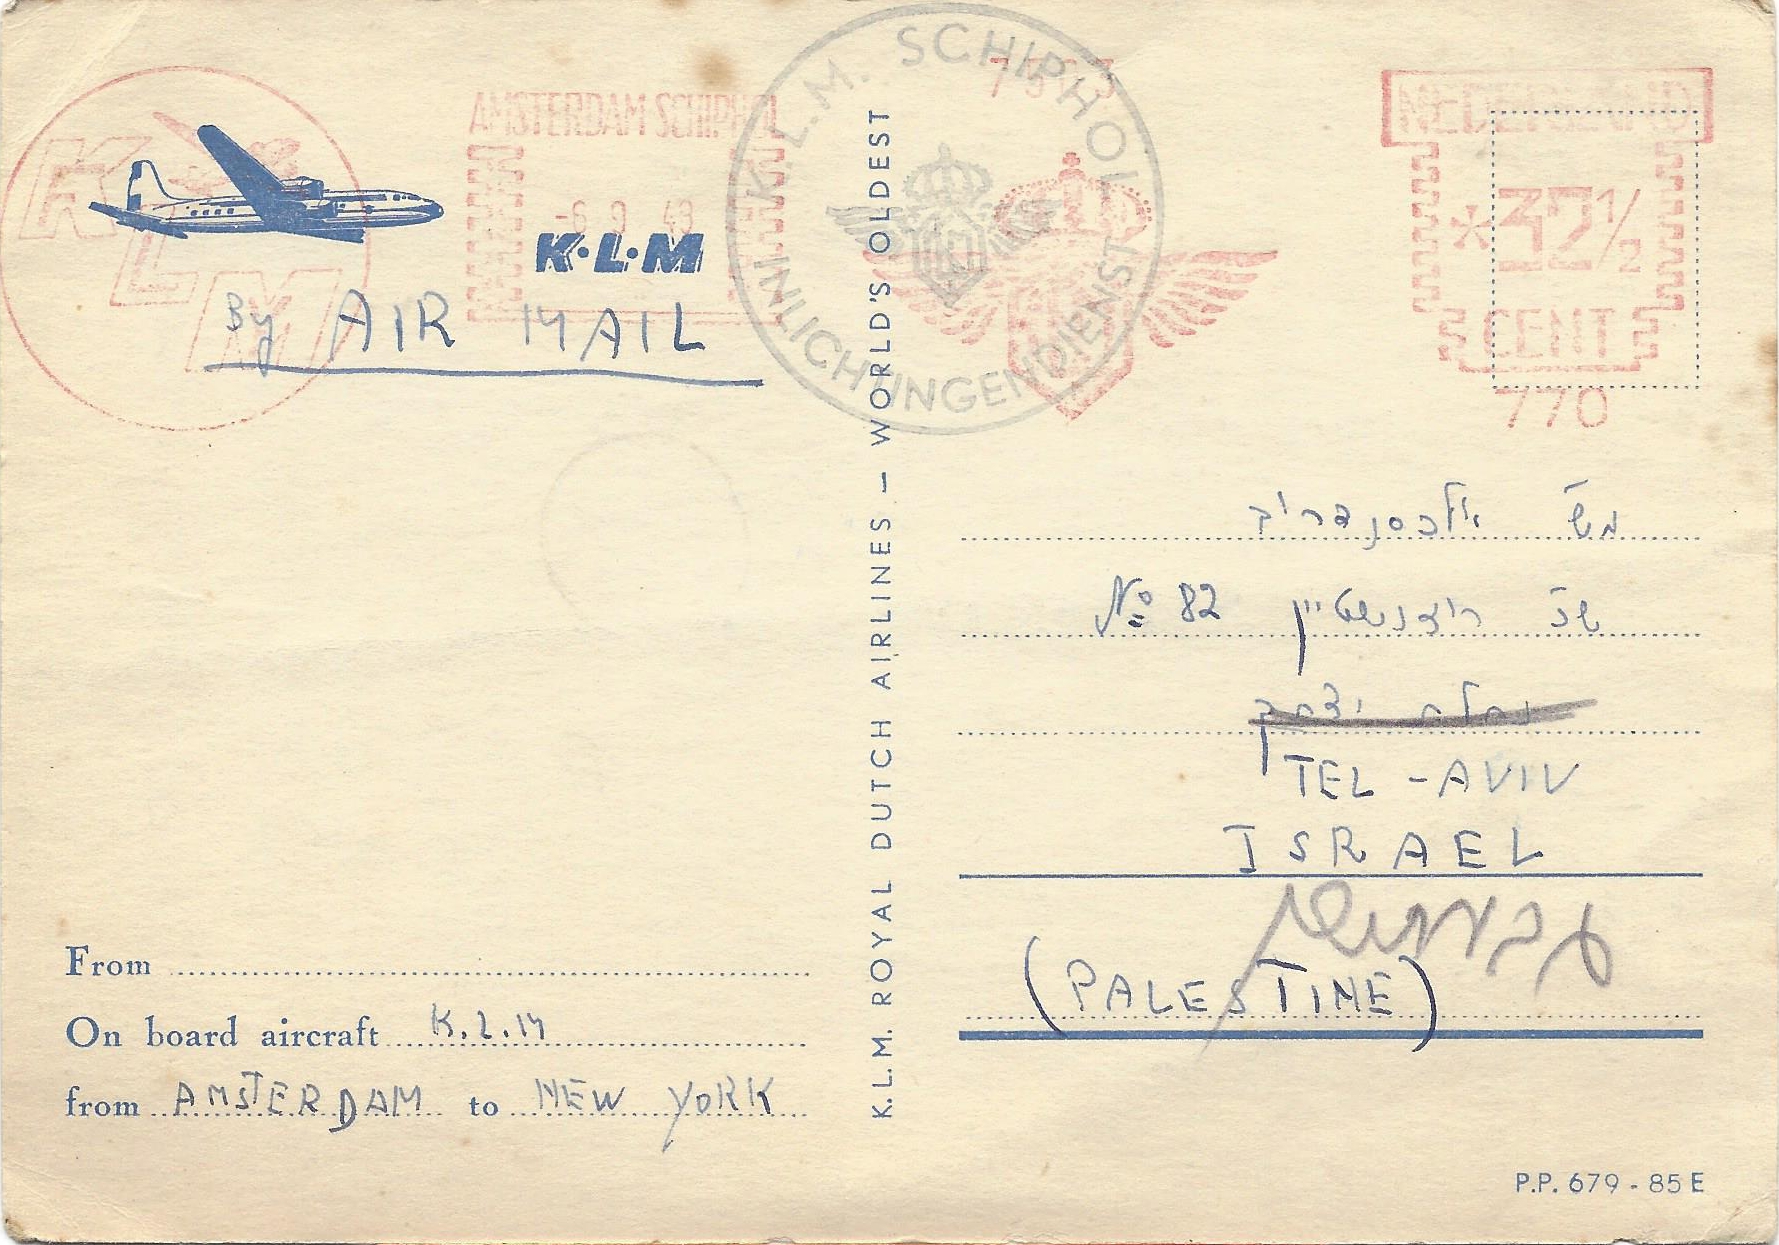 K.L.M. SCHIPHOL
INLICHTINGENDIENST
AMSTERDAM-SCHIPHOL
NEDERLAND
KLM
-6 9 48
*32½
K·L·M
CENT
770
By AIR MAIL
K.L.M. ROYAL DUTCH AIRLINES – WORLD'S OLDEST
מש'
שכ' No 82
נחלת יצחק
TEL-AVIV
ISRAEL
(PALESTINE)
From
On board aircraft K.L.M
from AMSTERDAM to NEW YORK
P.P. 679 - 85 E